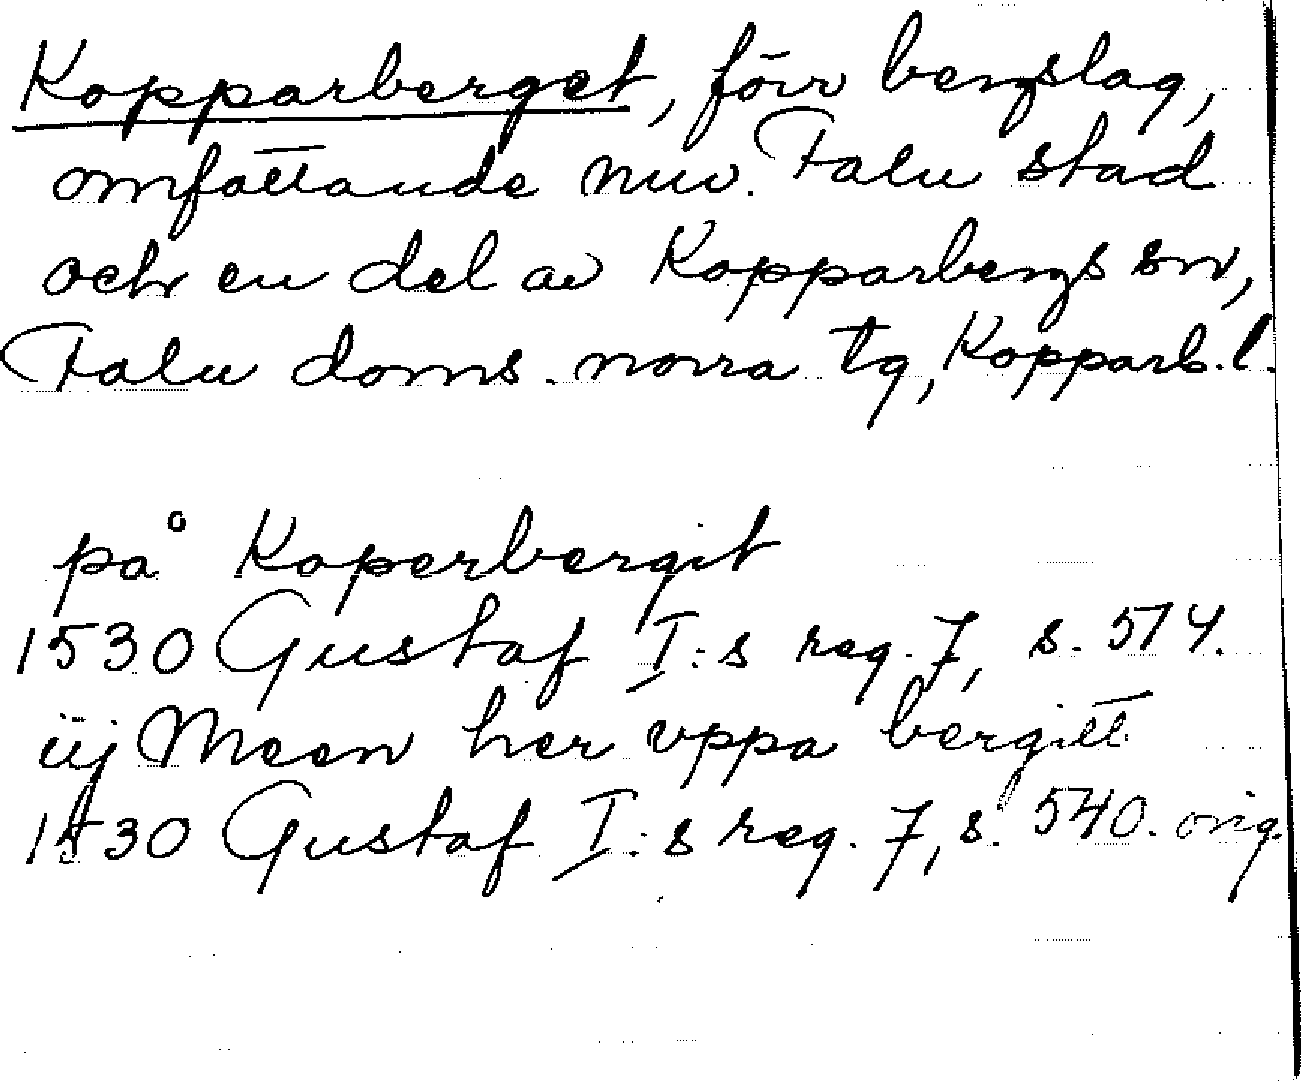 Kopparberget, förr bergslag,
omfattande nuv. Falu stad
och en del av Kopparbergs sn,
Falu doms. norra tg, Kopparb. l.
på Koperbergit
1530 Gustaf I:s reg. 7, s. 514.
iij Meen her vppa bergitt
1530 Gustaf I:s reg. 7, s. 540. orig.